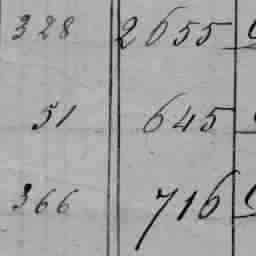 328 2655
51 645
366 716